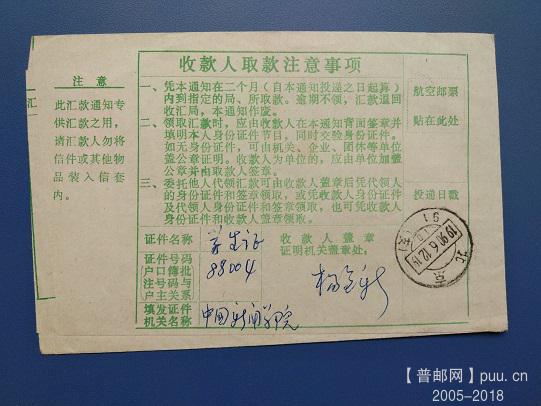 注 意
此汇款通知专
供汇款之用，
请汇款人勿将
信件或其他物
品装入信套
内。
收款人取款注意事项
一、凭本通知在二个月（自本通知投递之日起算）
内到指定的局、所取款。逾期不领，汇款退回
收汇局，本通知作废。
二、领取汇款时，应由收款人在本通知背面签章并
填明本人身份证件节目，同时交验身份证件。
如无身份证件，可由机关、企业、团体等单位
盖公章证明。收款人为单位的，应由单位加盖
公章并由取款人签章。
三、委托他人代领汇款可由收款人盖章后凭代领人
的身份证件和签章领取，或凭收款人身份证件
及代领人身份证件和签章领取，也可凭收款人
身份证件和代领人签章领取。
航空邮票
贴在此处
投递日戳
证件名称
学生证
收款人盖章
证明机关盖章处：
证件号码
户口簿批
注号码与
户主关系
88004
填发证件
机关名称
中国新闻学院
北京
1990.6.12.19
91
汇
【普邮网】puu.cn
2005-2018